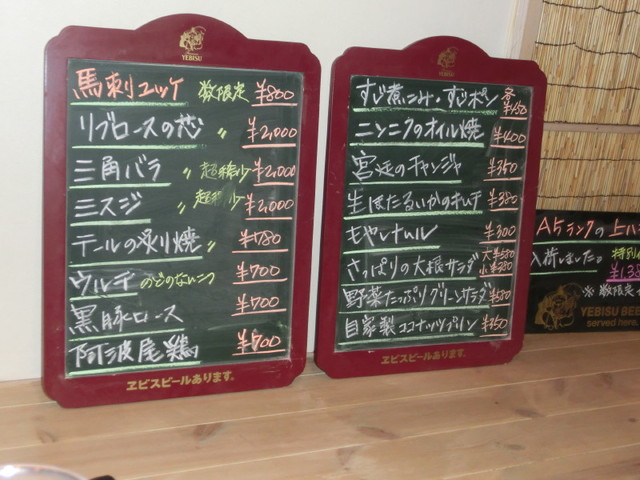 YEBISU
馬刺ユッケ 数限定 ¥800
リブロースの芯 〃 ¥2,000
三角バラ 〃 超稀少 ¥2,000
ミスジ 〃 超稀少 ¥2,000
テールの炙り焼 ¥780
ウルテ のどのないこつ ¥700
黒豚ロース ¥700
阿波尾鶏 ¥700
ヱビスビールあります。
YEBISU
すじ煮こみ・すじポン 各¥450
ニンニクのオイル焼 ¥400
宮廷のチャンジャ ¥350
生ほたるいかのキムチ ¥380
もやしナムル ¥300
さっぱりの大根サラダ 大¥580 小¥380
野菜たっぷりグリーンサラダ ¥580
自家製ココナッツプリン ¥350
ヱビスビールあります。
A5ランクの上ハ
入荷しました。 特別
※数限定
YEBISU BEE
served here